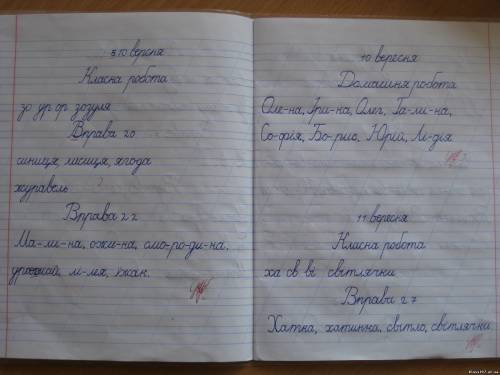 10 вересня
Класна робота
зо др ор зозуля
Вправа 20
синиця, лисиця, ягода
журавель
Вправа 22
Ма-ли-на, ожи-на, смо-ро-ди-на,
урожай, лі-лія, їжак.
10 вересня
Домашня робота
Оле-на, Іри-на, Олег, Га-ли-на,
Со-фія, Бо-рис, Юрій, Лі-дія.
11 вересня
Класна робота
ха св ві світлячки
Вправа 27
Хатка, хатинка, світло, світлячки